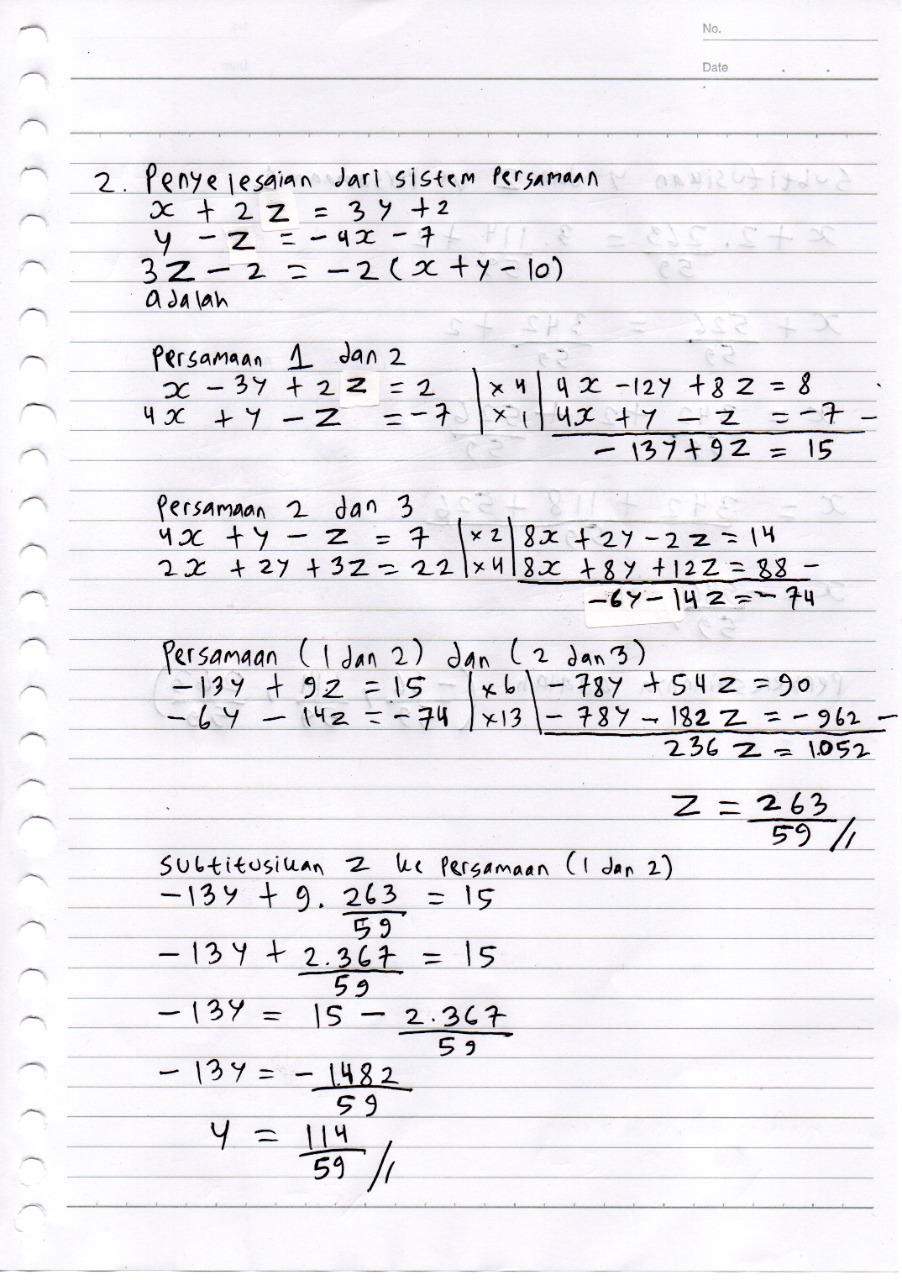 No.
Date
2. Penyelesaian dari sistem Persamaan
x + 2z = 3y + 2
y - z = -4x - 7
3z - 2 = -2(x + y - 10)
adalah
Persamaan 1 dan 2
x - 3y + 2z = 2 | x 4 | 4x - 12y + 8z = 8
4x + y - z = -7 | x 1 | 4x + y - z = -7 -
-13y + 9z = 15
Persamaan 2 dan 3
4x + y - z = 7 | x 2 | 8x + 2y - 2z = 14
2x + 2y + 3z = 22 | x 4 | 8x + 8y + 12z = 88 -
-6y - 14z = -74
Persamaan (1 dan 2) dan (2 dan 3)
-13y + 9z = 15 | x 6 | -78y + 54z = 90
-6y - 14z = -74 | x 13 | -78y - 182z = -962 -
236z = 1.052
z = 263/59 //
Subtitusikan z ke Persamaan (1 dan 2)
-13y + 9 . 263/59 = 15
-13y + 2.367/59 = 15
-13y = 15 - 2.367/59
-13y = -1.482/59
y = 114/59 //